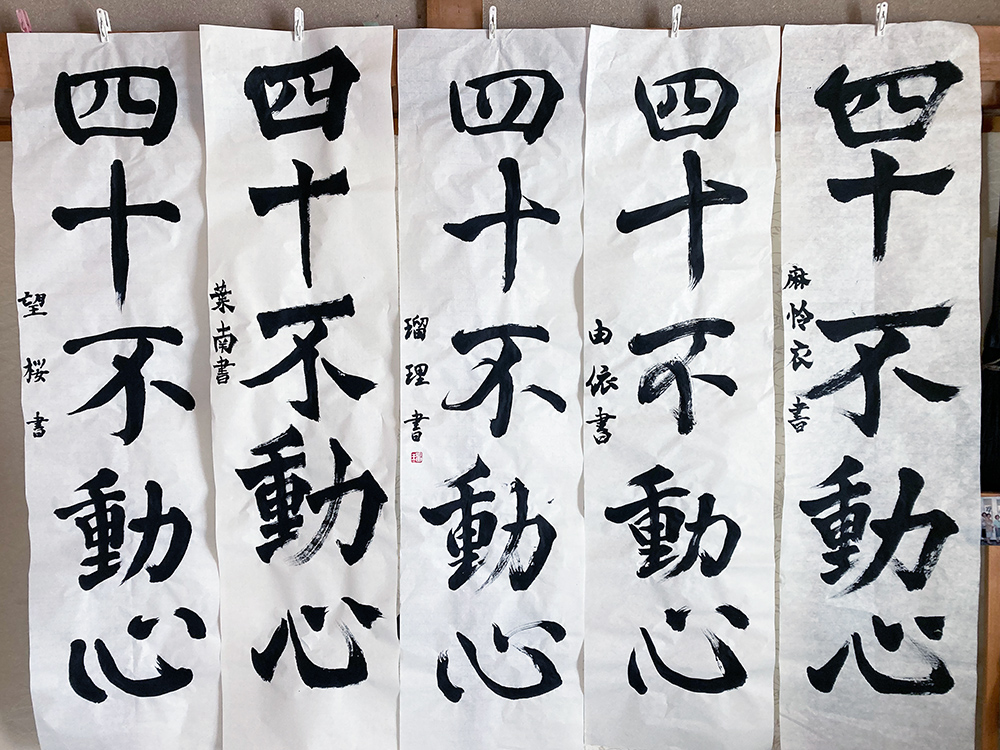 四十不動心
麻怜衣書
四十不動心
由依書
四十不動心
瑠理書
四十不動心
葉南書
四十不動心
望桜書